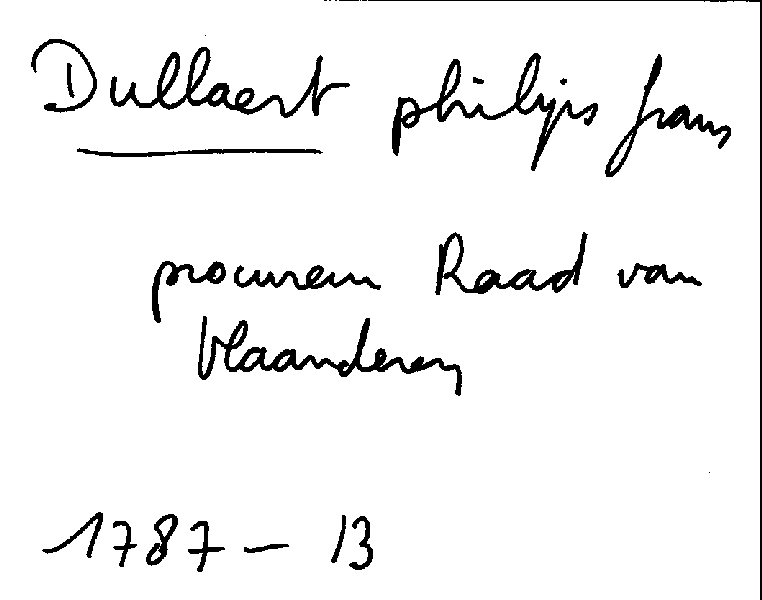 Dullaert philips frans
procureur Raad van
Vlaanderen
1787 - 13